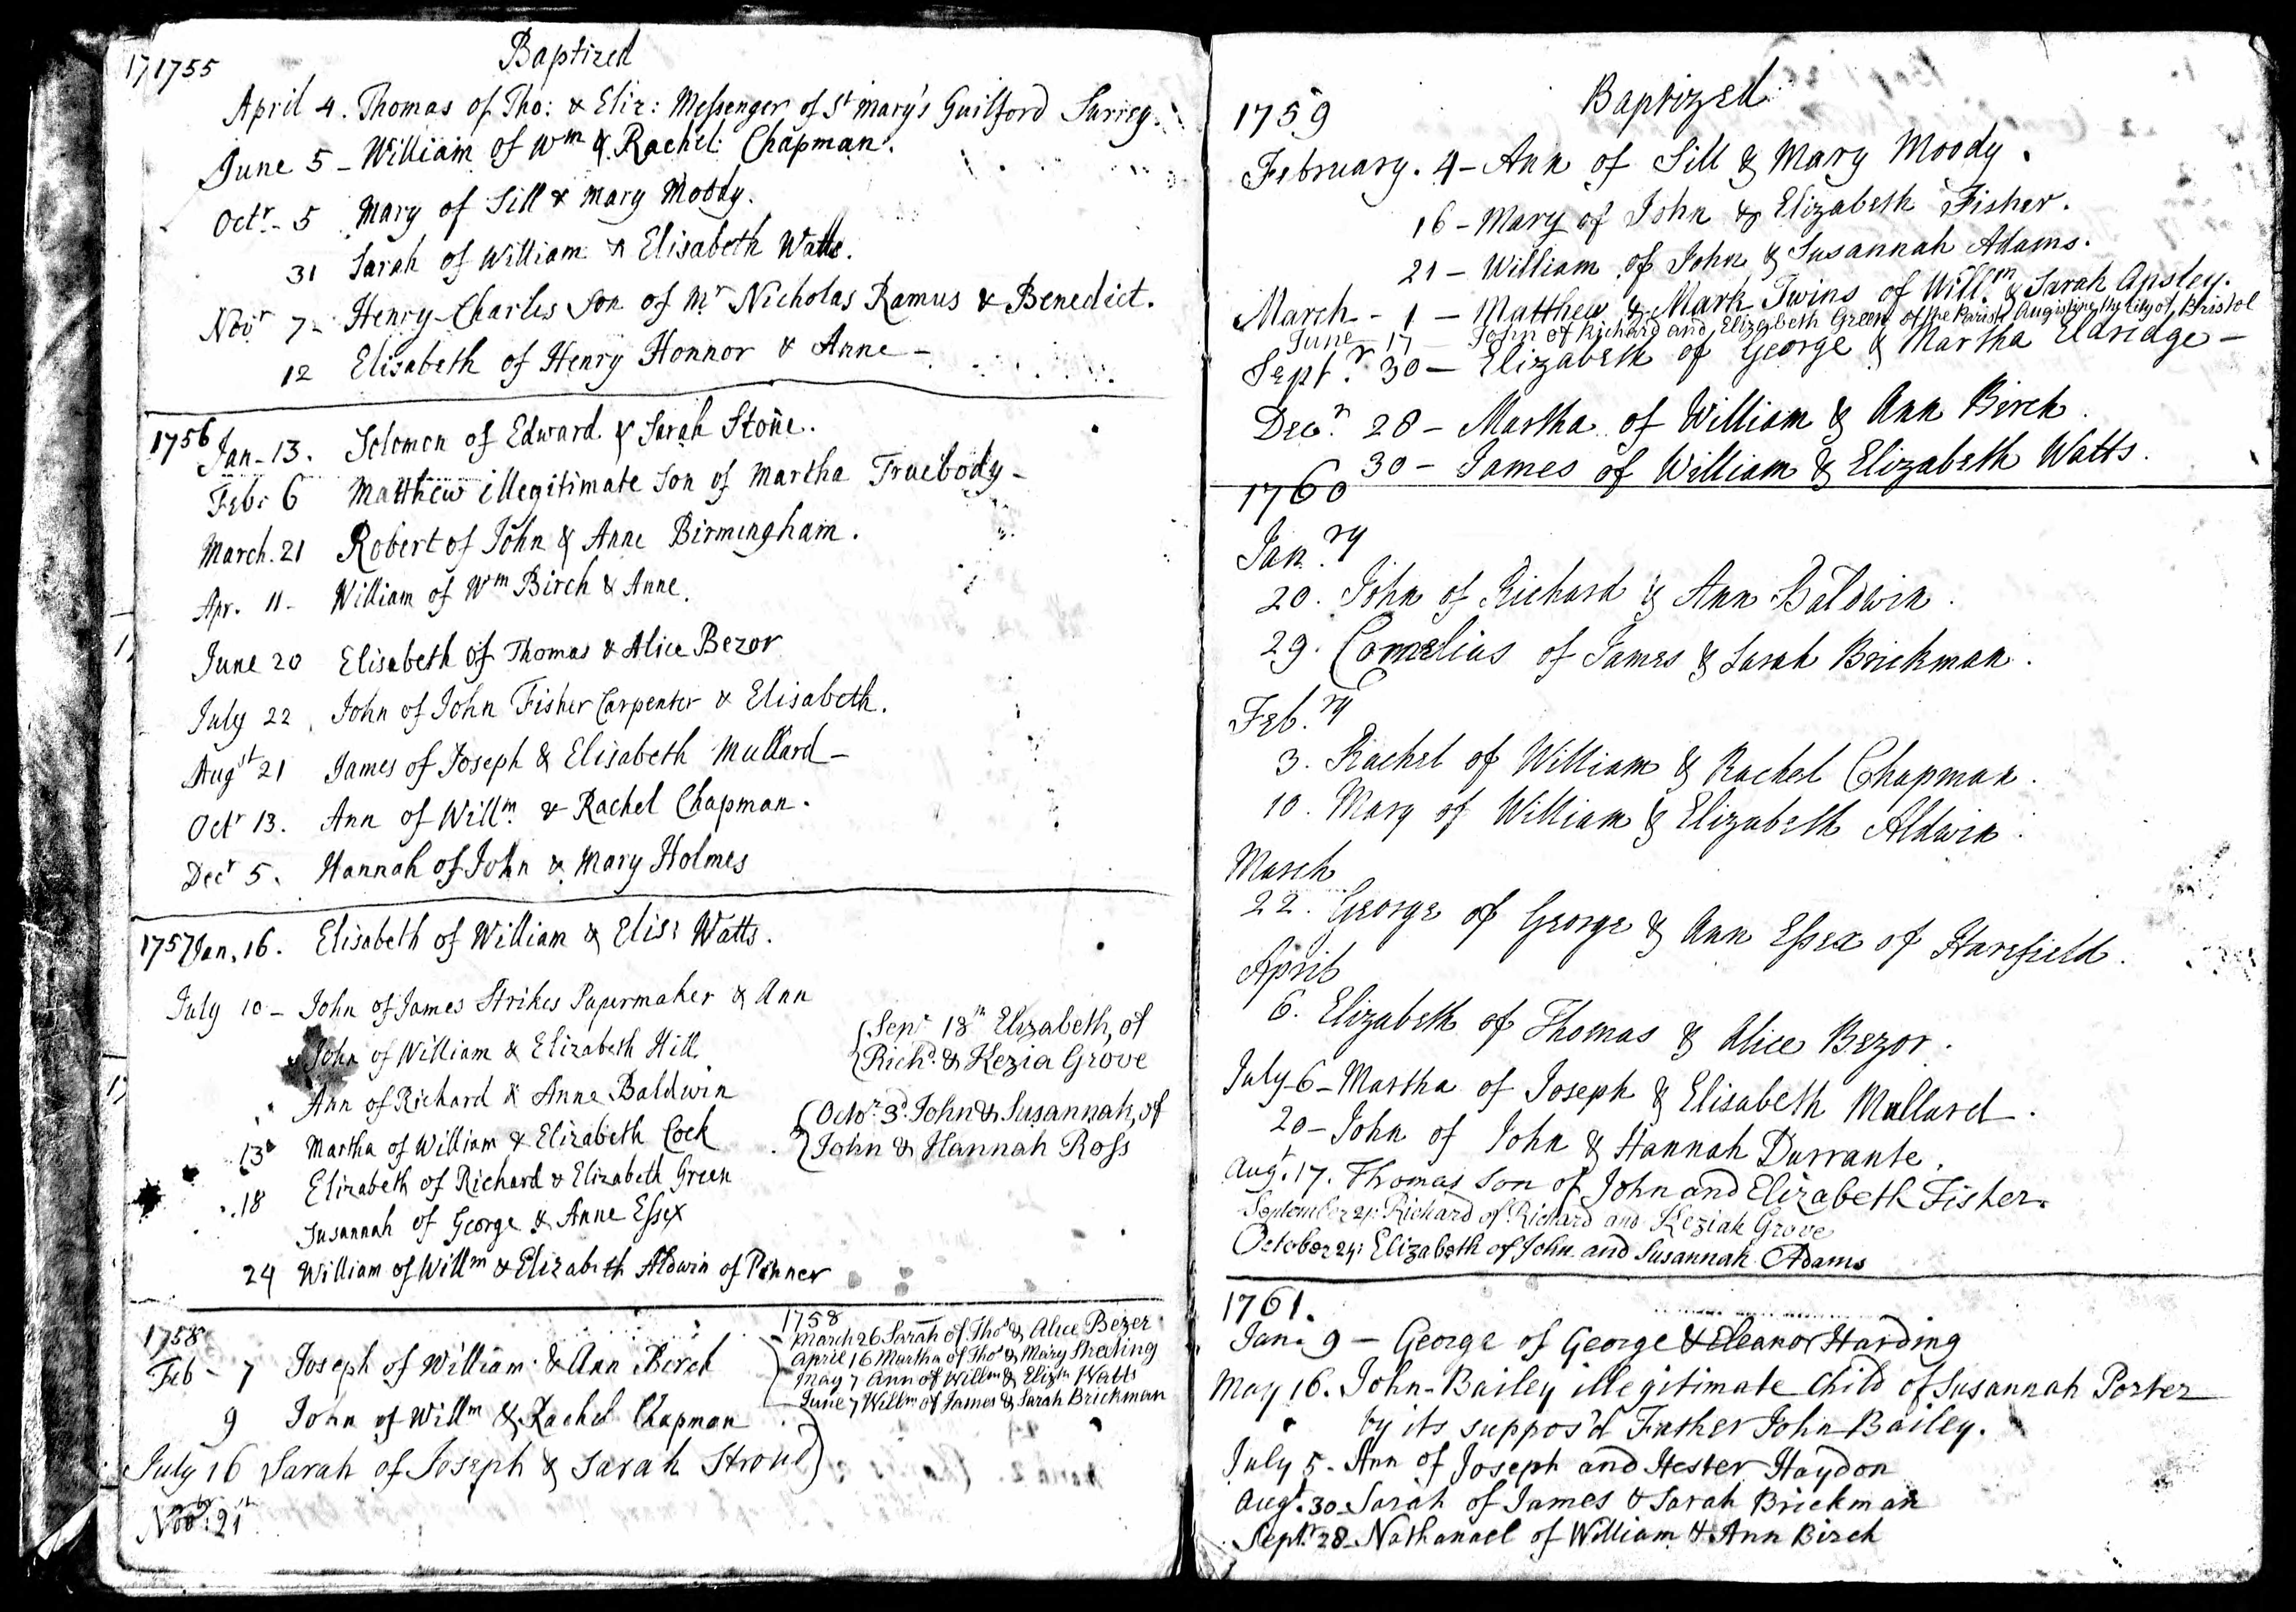 1755 Baptized
April 4. Thomas of Tho: & Eliz: Messenger of St Mary's Guilford Surrey.
June 5 - William of Wm & Rachel Chapman.
Octr - 5 Mary of Sill & Mary Moody.
31 Sarah of William & Elisabeth Watts.
Novr 7 - Henry-Charles Son of Mr Nicholas Ramus & Benedict.
12 Elisabeth of Henry Honnor & Anne -
1756 Jan - 13. Solomon of Edward & Sarah Stone.
Feb: 6 Matthew illegitimate Son of Martha Truebody -
March. 21 Robert of John & Anne Birmingham.
Apr. 11 - William of Wm Birch & Anne.
June 20 Elisabeth of Thomas & Alice Bezor
July 22 John of John Fisher Carpenter & Elisabeth.
Augst 21 James of Joseph & Elisabeth Mullard -
Octr 13. Ann of Willm & Rachel Chapman.
Decr 5. Hannah of John & Mary Holmes
1757 Jan. 16. Elisabeth of William & Elis: Watts.
July 10 - John of James Strikes Papermaker & Ann
John of William & Elizabeth Hill.
Ann of Richard & Anne Baldwin
13 Martha of William & Elizabeth Cock
18 Elizabeth of Richard & Elizabeth Green
Susannah of George & Anne Essex
24 William of Willm & Elizabeth Aldwin of Pinner
Sepr 18th Elizabeth, of
Richd. & Kezia Grove
Octor 3d. John & Susannah, of
John & Hannah Ross
1758
Feb - 7 Joseph of William & Ann Birch
9 John of Willm & Rachel Chapman
July 16 Sarah of Joseph & Sarah Stroud
Novbr: 21st
1758
March 26 Sarah of Thos & Alice Bezer
April 16 Martha of Thos & Mary Skeating
May 7 Ann of Willm & Elizth Watts
June 7 Willm of James & Sarah Brickman
Baptized
1759
February. 4 - Ann of Sill & Mary Moody.
16 - Mary of John & Elizabeth Fisher.
21 - William of John & Susannah Adams.
March - 1 - Matthew & Mark Twins of Willm & Sarah Apsley.
June - 17 - John of Richard and Elizabeth Green of the Parish Augustine the City of Bristol
Septr. 30 - Elizabeth of George & Martha Eldridge -
Decr. 28 - Martha of William & Ann Birch.
30 - James of William & Elizabeth Watts.
1760
Jan.ry
20. John of Richard & Ann Baldwin.
29. Cornelius of James & Sarah Brickman.
Feb.ry
3. Rachel of William & Rachel Chapman.
10. Mary of William & Elizabeth Aldwin.
March
22. George of George & Ann Essex of Harefield.
April
6. Elizabeth of Thomas & Alice Bezor.
July - 6 - Martha of Joseph & Elisabeth Mullard.
20 - John of John & Hannah Durrante.
Augt. 17. Thomas Son of John and Elizabeth Fisher.
September 21: Richard of Richard and Keziah Grove
October 24: Elizabeth of John and Susannah Adams
1761.
Jan. 9 - George of George & Eleanor Harding
May 16. John-Bailey illegitimate Child of Susannah Porter
by its suppos'd Father John Bailey.
July 5 - Ann of Joseph and Hester Haydon
Augt. 30 - Sarah of James & Sarah Brickman
Septr. 28 - Nathanael of William & Ann Birch